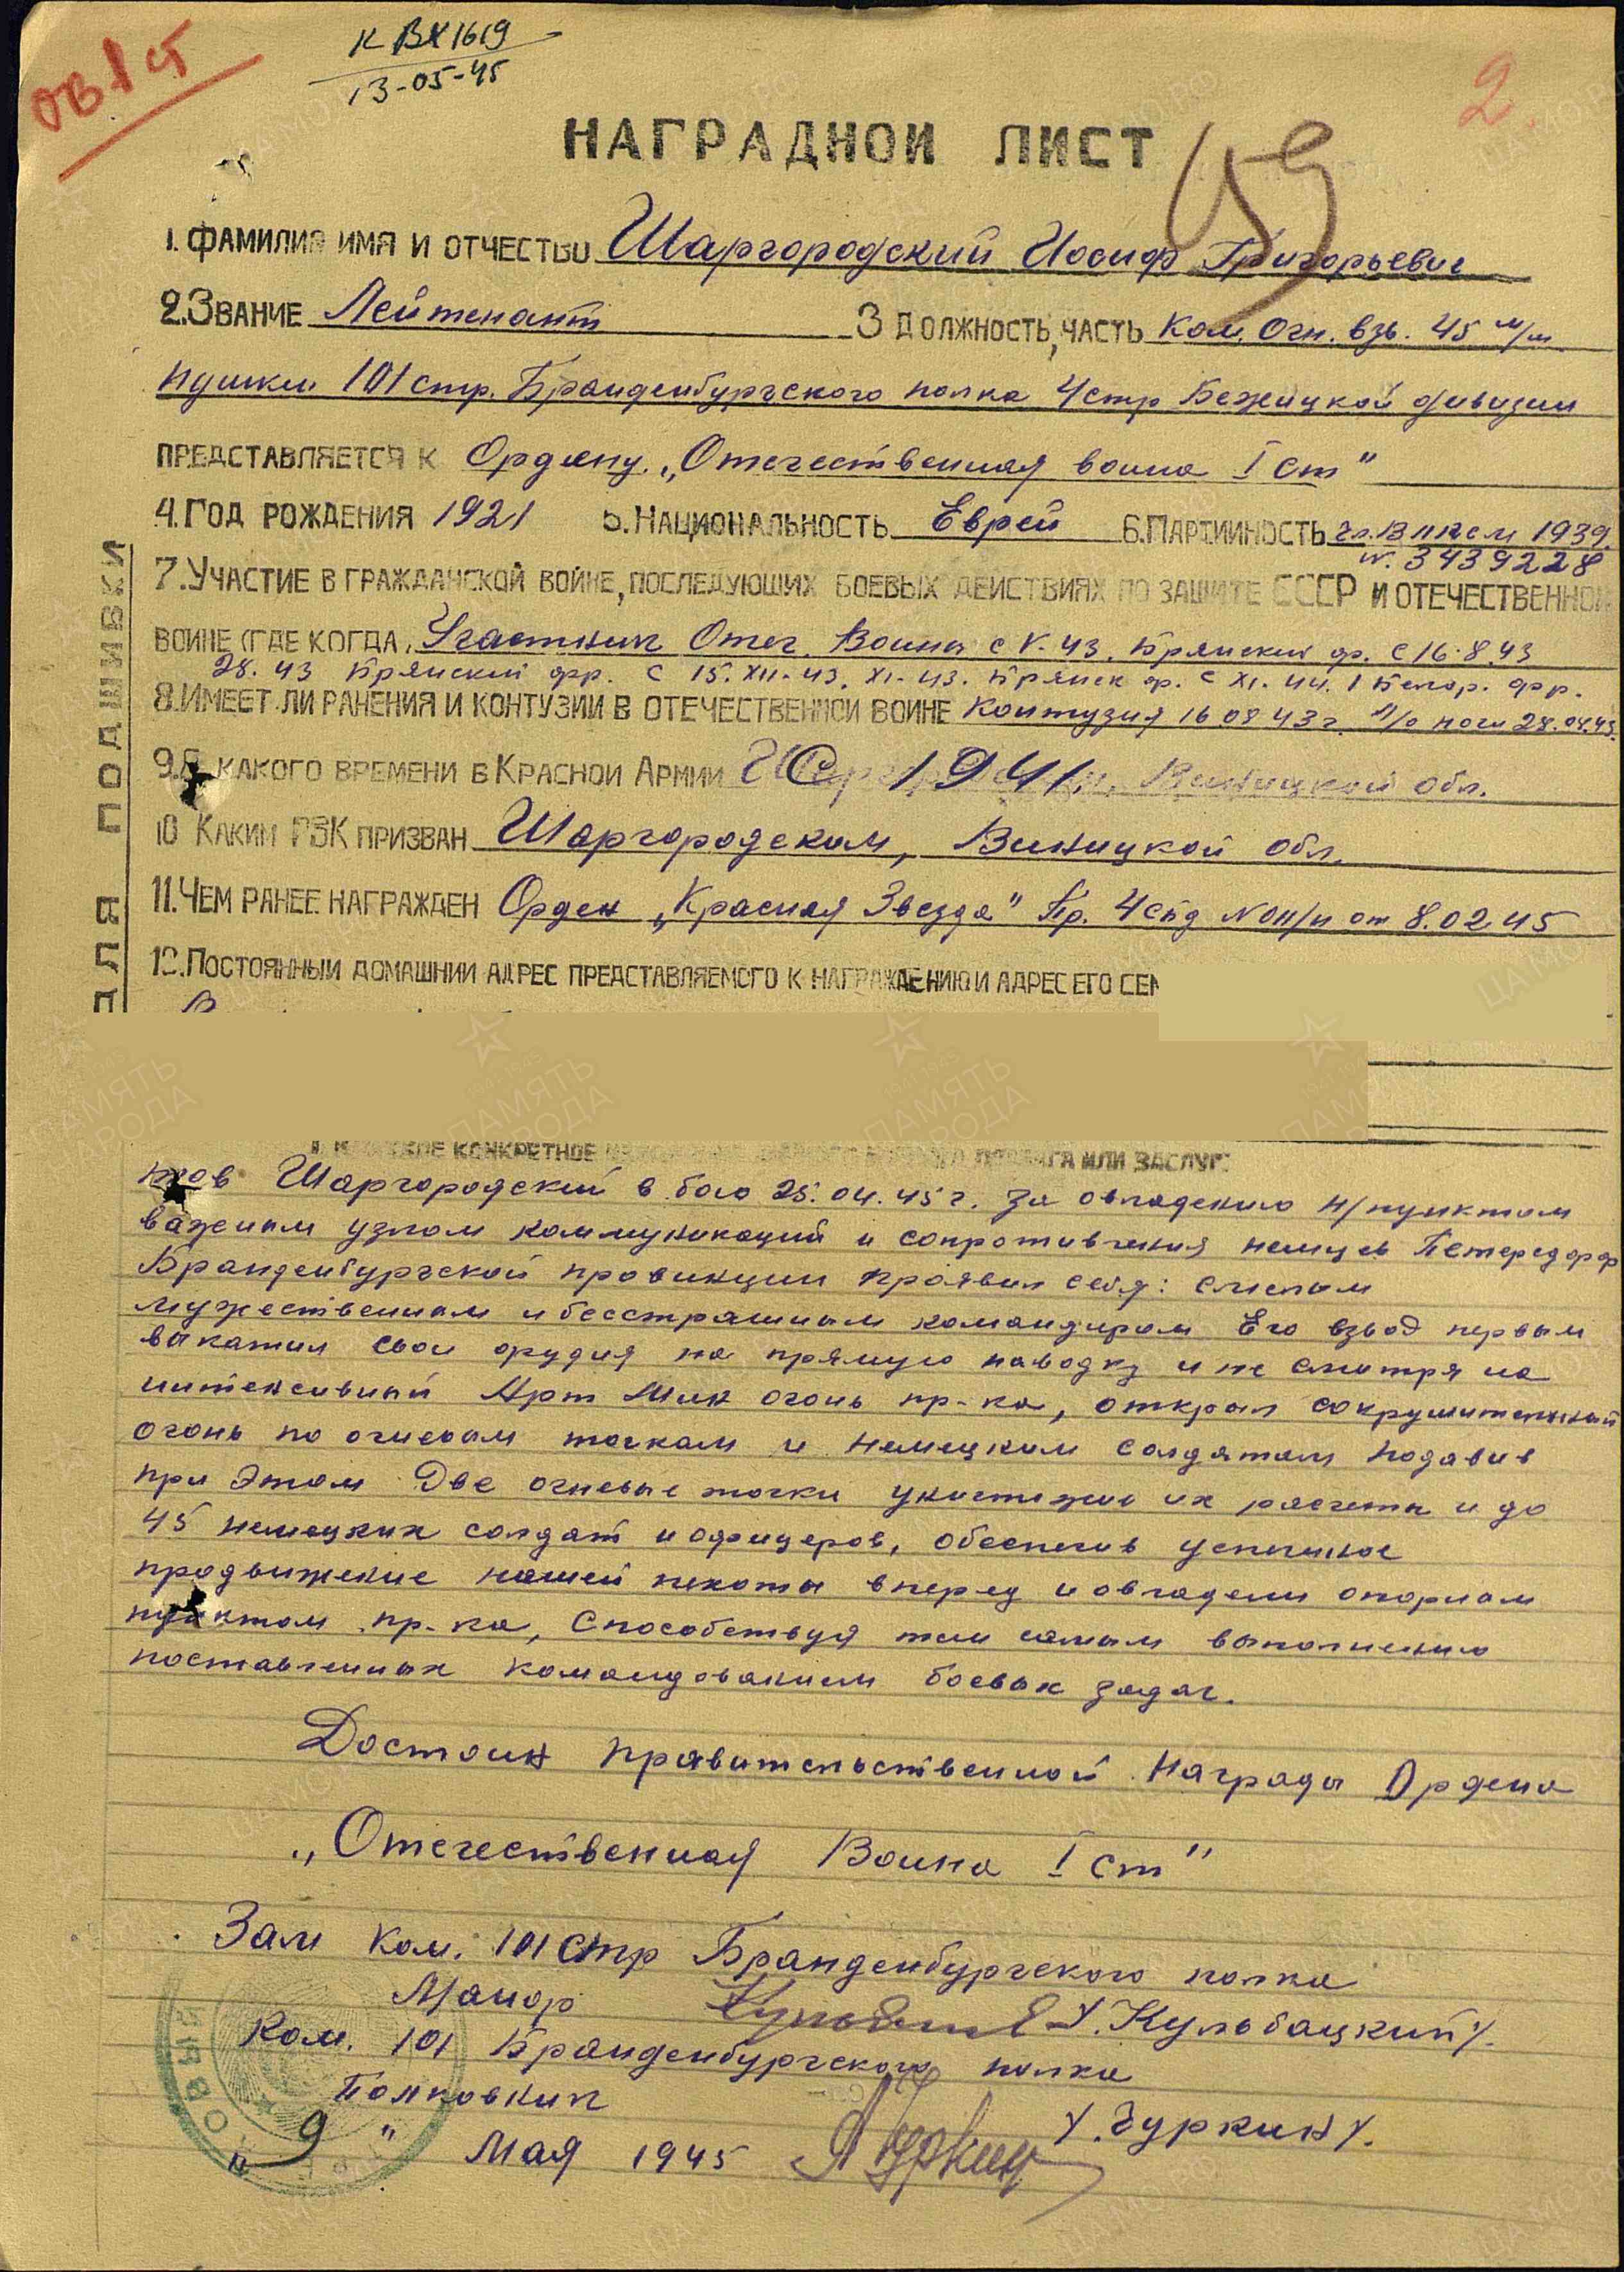 ОВ 1 ст
К ВХ 1619
13-05-45
2.
НАГРАДНОЙ ЛИСТ
1. ФАМИЛИЯ ИМЯ И ОТЧЕСТВО Шаргородский Иосиф Григорьевич
2. ЗВАНИЕ Лейтенант 3 ДОЛЖНОСТЬ, ЧАСТЬ Ком. Огн. взв. 45 м/м
пушки 101 стр. Бранденбургского полка 4 стр Бежицкой дивизии
ПРЕДСТАВЛЯЕТСЯ К Ордену „Отечественная война I ст"
4. ГОД РОЖДЕНИЯ 1921 5. НАЦИОНАЛЬНОСТЬ Еврей 6. ПАРТИЙНОСТЬ чл. 1939.
N. 3439228
7. УЧАСТИЕ В ГРАЖДАНСКОЙ ВОЙНЕ, ПОСЛЕДУЮЩИХ БОЕВЫХ ДЕЙСТВИЯХ ПО ЗАЩИТЕ СССР И ОТЕЧЕСТВЕННОЙ
ВОЙНЕ (ГДЕ КОГДА, Участник Отеч. Войны с V-43. Брянский ф. с 16.8.43
28. 43 Брянский фр. с 15.XII-43. XI-43. Брянск ф. с XI. 44. 1 Белор. фр.
8. ИМЕЕТ ЛИ РАНЕНИЯ И КОНТУЗИИ В ОТЕЧЕСТВЕННОЙ ВОЙНЕ Контузия 16 08 43 г. л/р ноги 28.04.43.
9. С КАКОГО ВРЕМЕНИ В КРАСНОЙ АРМИИ С 1941 Виницкой обл.
10 КАКИМ РВК ПРИЗВАН Шаргородским, Виницкой обл.
11. ЧЕМ РАНЕЕ НАГРАЖДЕН Орден „Красная Звезда" Пр. 4 сбд N 04/н от 8.02.45
12. ПОСТОЯННЫЙ ДОМАШНИЙ АДРЕС ПРЕДСТАВЛЯЕМОГО К НАГРАЖДЕНИЮ И АДРЕС ЕГО СЕМ
ДЛЯ ПОДШИВКИ
КОНКРЕТНОЕ ПОДВИГА ИЛИ ЗАСЛУГ:
тов Шаргородский в бою 25.04.45 г. За овладению н/пунктом
важным узлом коммуникаций и сопротивления немцев Петередорф
Бранденбургской провинции проявил себя: смелым
мужественным и бесстрашным командиром Его взвод первым
выкатил свои орудия на прямую наводку и не смотря на
интенсивный Арт Мин огонь пр-ка, открыл сокрушительный
огонь по огневым точкам и немецким солдатам подавив
при этом Две огневые точки уничтожив их расчеты и до
45 немецких солдат и офицеров, обеспечив успешное
продвижение нашей пехоты вперед и овладели опорным
пунктом пр-ка, Способствуя тем самым выполнению
поставленных командованием боевых задач.
Достоин правительственной Награды Ордена
„Отечественная Война I ст"
Зам Ком. 101 Стр Бранденбургского полка
Майор /. Кульбацкий /.
Ком. 101 Бранденбургского полка
Полковник /. Чуркин /.
" 9 " Мая 1945